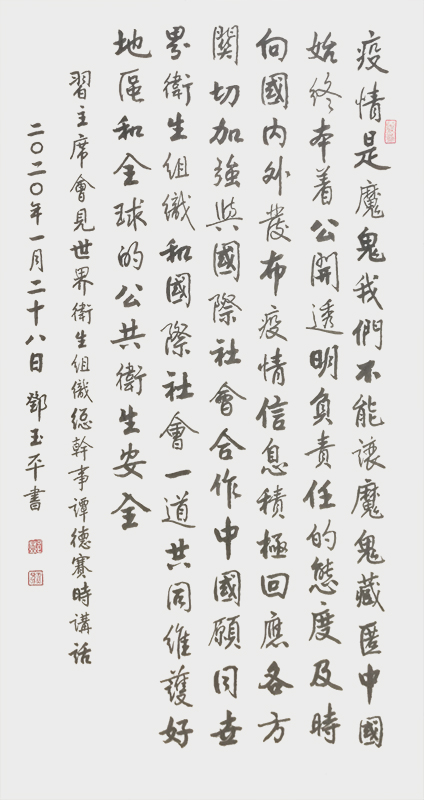 疫情是魔鬼我們不能讓魔鬼藏匿中國
始終本着公開透明負責任的態度及時
向國内外發布疫情信息積極回應各方
關切加強與國際社會合作中國願同世
界衛生組織和國際社會一道共同維護好
地區和全球的公共衛生安全
習主席會見世界衛生組織總幹事譚德賽時講話
二〇二〇年一月二十八日 鄧玉平書